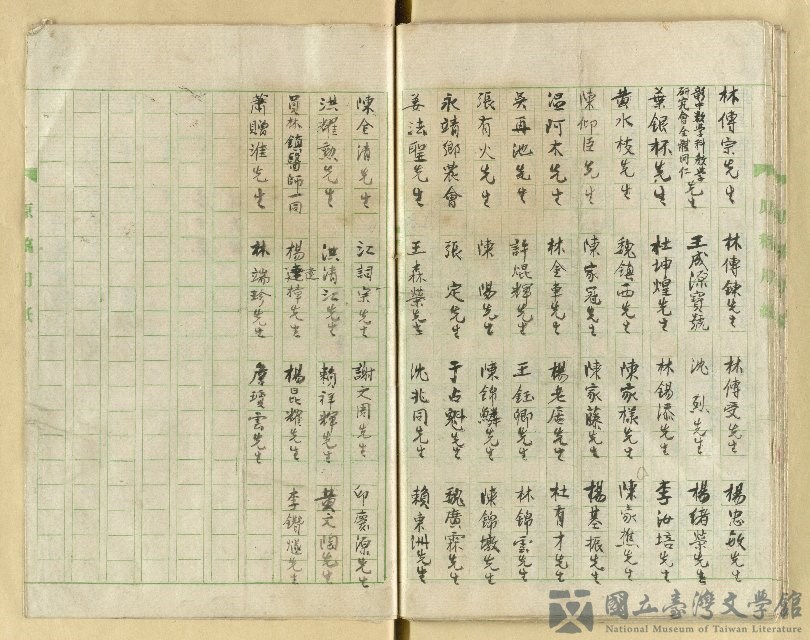 林傳宗先生 林傳鍊先生 林傳受先生 楊忠敏先生
彰中數學科教學研究會全體同仁先生 王成源寶號 沈烈先生 楊緒榮先生
葉銀杯先生 杜坤煌先生 林錫添先生 李汝培先生
黃水枝先生 魏鎮西先生 陳家樣先生 陳家蕉先生
陳仰臣先生 陳家冠先生 陳家藤先生 楊基振先生
溫阿木先生 林金車先生 楊老居先生 杜有才先生
吳再池先生 許焜輝先生 王鈺卿先生 林錦雲先生
張有火先生 陳陽先生 陳錦鱗先生 陳錦墩先生
永靖鄉農會 張定先生 于占魁先生 魏廣霖先生
姜法聖先生 王森榮先生 沈兆同先生 賴東洲先生
陳金清先生 江詞宗先生 謝文周先生 邱慶源先生
洪耀勳先生 洪清江先生 賴祥輝先生 黃文陶先生
員林鎮醫師一同 楊達樟先生 楊昆耀先生 李鏘先生
蕭贈淮先生 林端珍先生 詹瓊雲先生
國立臺灣文學館
National Museum of Taiwan Literature